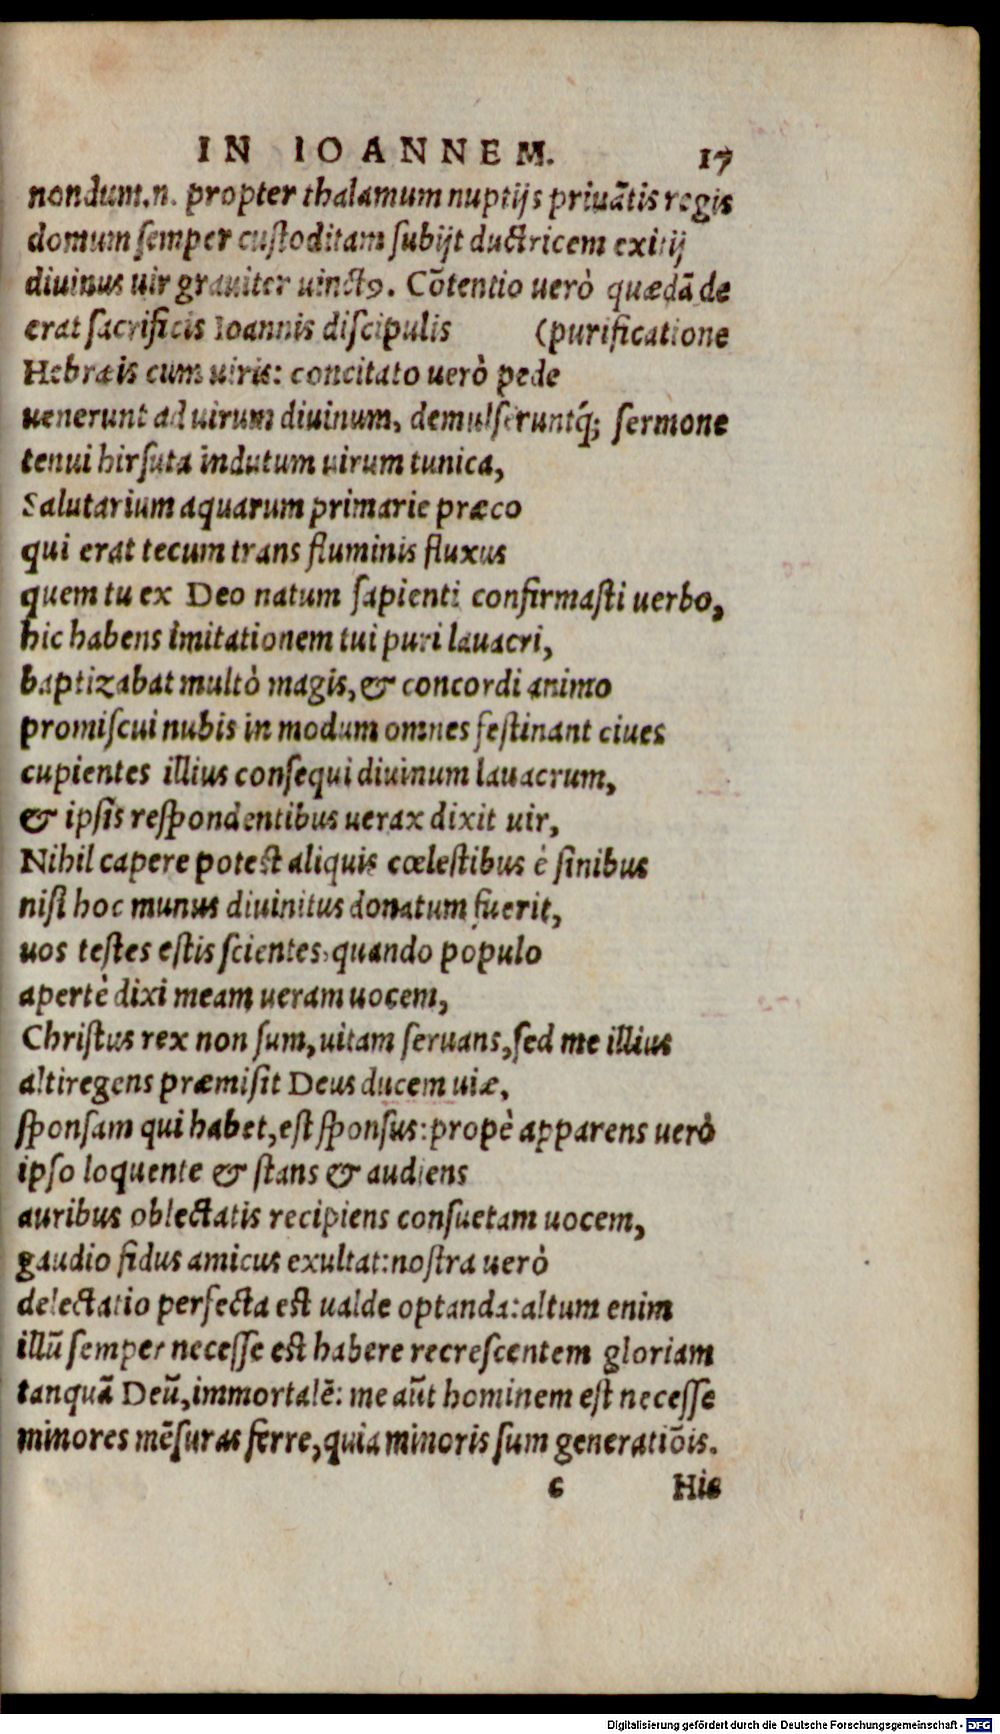 IN IOANNEM. 17
nondum.n. propter thalamum nuptijs priuãtis regis
domum semper custoditam subijt ductricem exitij
diuinus uir grauiter uinctꝰ. Cõtentio uerò quædã de
erat sacrificis Ioannis discipulis (purificatione
Hebræis cum uiris: concitato uerò pede
uenerunt ad uirum diuinum, demulseruntq́; sermone
tenui hirsuta indutum uirum tunica,
Salutarium aquarum primarie præco
qui erat tecum trans fluminis fluxus
quem tu ex Deo natum sapienti confirmasti uerbo,
hic habens imitationem tui puri lauacri,
baptizabat multò magis, & concordi animo
promiscui nubis in modum omnes festinant ciues
cupientes illius consequi diuinum lauacrum,
& ipsis respondentibus uerax dixit uir,
Nihil capere potest aliquis cœlestibus è sinibus
nisi hoc munus diuinitus donatum fuerit,
uos testes estis scientes, quando populo
apertè dixi meam ueram uocem,
Christus rex non sum, uitam seruans, sed me illius
altiregens præmisit Deus ducem uiæ,
sponsam qui habet, est sponsus: propè apparens uerò
ipso loquente & stans & audiens
auribus oblectatis recipiens consuetam uocem,
gaudio fidus amicus exultat: nostra uerò
delectatio perfecta est ualde optanda: altum enim
illũ semper necesse est habere recrescentem gloriam
tanquã Deũ, immortalẽ: me aũt hominem est necesse
minores mẽsuras ferre, quia minoris sum generatiõis.
c His
Digitalisierung gefördert durch die Deutsche Forschungsgemeinschaft - DFG